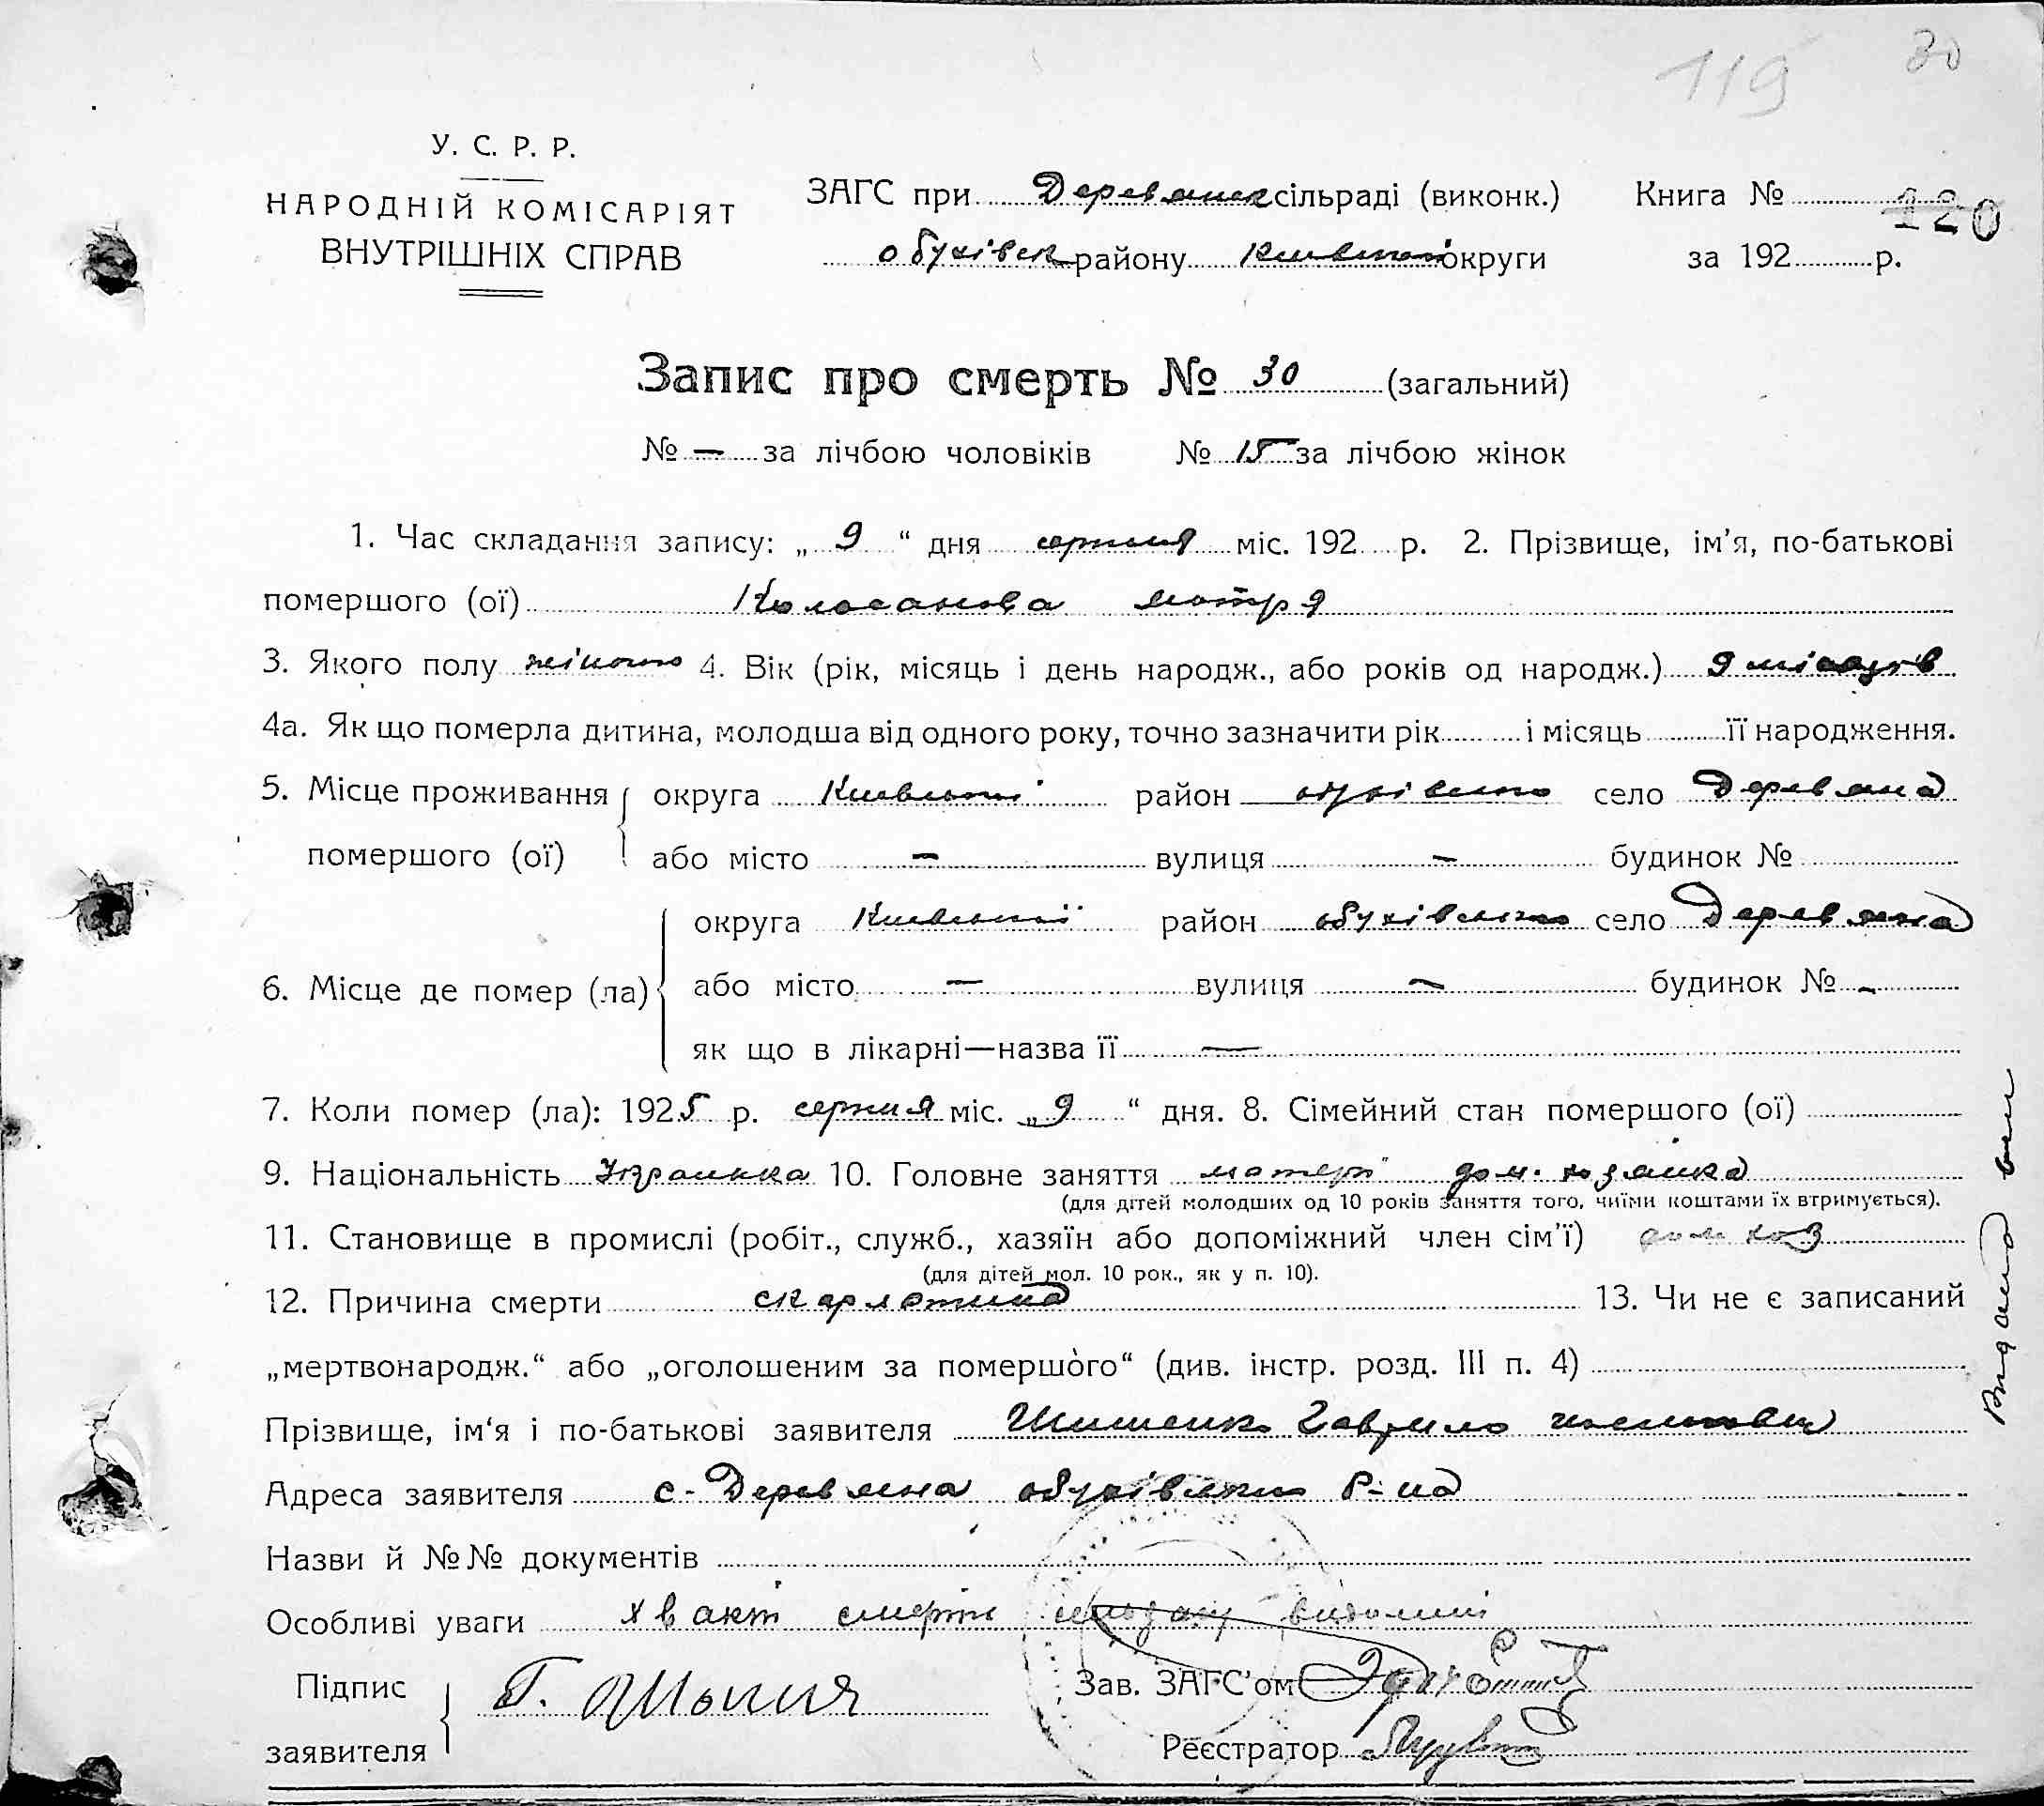 119 30
У. С. Р. Р.
НАРОДНІЙ КОМІСАРІЯТ
ВНУТРІШНІХ СПРАВ
ЗАГС при Деревянск сільраді (виконк.)
Обухівск району Київської округи
Книга № 120
за 192 р.
Запис про смерть № 30 (загальний)
№ — за лічбою чоловіків № 15 за лічбою жінок
1. Час складання запису: „ 9 “ дня серпня міс. 192 р. 2. Прізвище, ім’я, по-батькові
помершого (ої) Мотря
3. Якого полу жіночо 4. Вік (рік, місяць і день народж., або років од народж.) 9 місяців
4а. Як що померла дитина, молодша від одного року, точно зазначити рік і місяць її народження.
5. Місце проживання помершого (ої) округа Київської район село Деревяна
або місто — вулиця — будинок №
6. Місце де помер (ла) округа Київської район обухівського село Деревяна
або місто — вулиця — будинок № -
як що в лікарні—назва її —
7. Коли помер (ла): 1925 р. серпня міс. „9 “ дня. 8. Сімейний стан помершого (ої)
9. Національність Українка 10. Головне заняття матері дом. хозяйка
(для дітей молодших од 10 років заняття того, чиїми коштами їх втримується).
11. Становище в промислі (робіт., служб., хазяїн або допоміжний член сім’ї) дом хоз
(для дітей мол. 10 рок., як у п. 10).
12. Причина смерти скарлатина 13. Чи не є записаний
„мертвонародж.“ або „оголошеним за помершого“ (див. інстр. розд. III п. 4)
Прізвище, ім‘я і по-батькові заявителя Гаврило
Адреса заявителя с- Деревяна обухівського Р-на
Назви й №№ документів
Особливі уваги хвакт смерти
Підпис заявителя Г.
Зав. ЗАГС’ом
Реєстратор
Видано